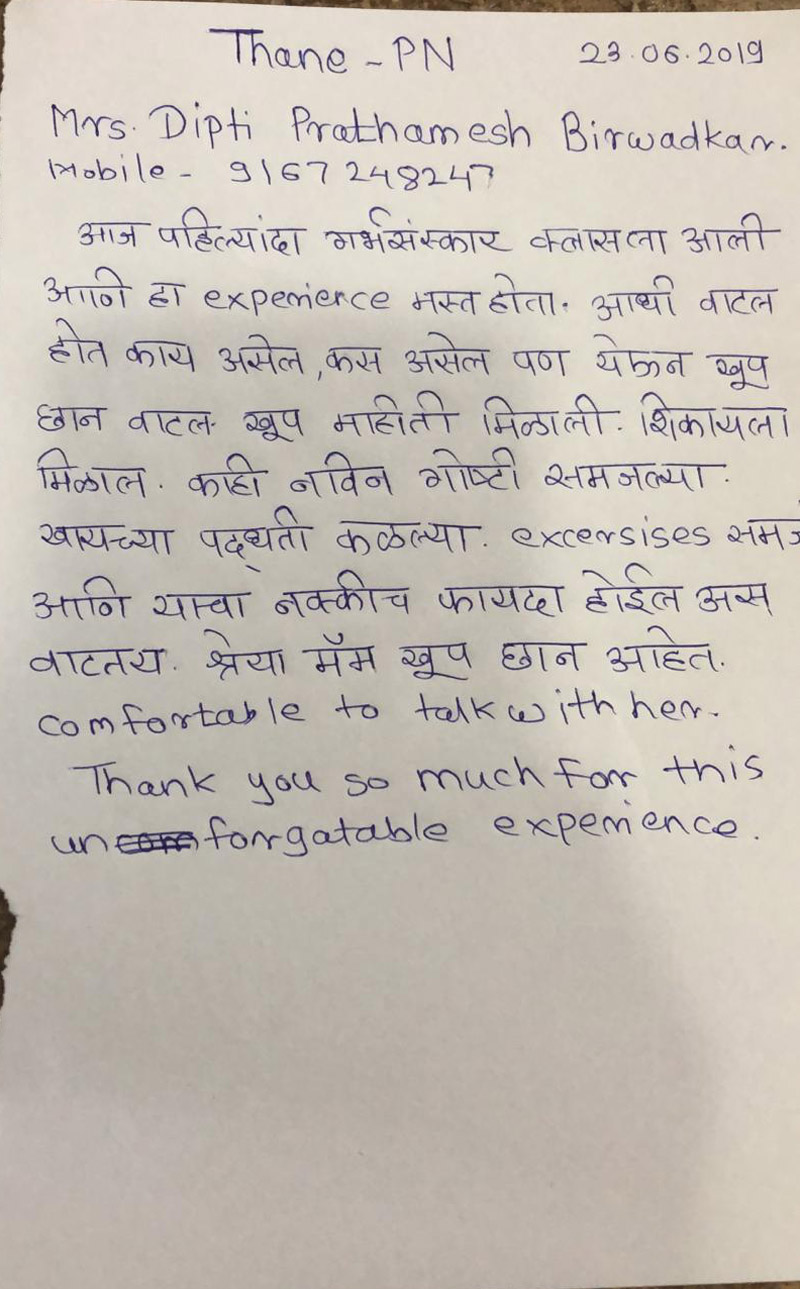 Thane - PN 23.06.2019
Mrs. Dipti Prathamesh Birwadkar.
Mobile - 9167248247
आज पहिल्यांदा गर्भसंस्कार क्लासला आली
आणि हा experience मस्त होता. आधी वाटल
होत काय असेल, कस असेल पण येऊन खूप
छान वाटल. खूप माहीती मिळाली. शिकायला
मिळाल. काही नविन गोष्टी समजल्या.
खायच्या पद्धती कळल्या. excersises समज
आणि याचा नक्कीच फायदा होईल अस
वाटतय. श्रेया मॅम खूप छान आहेत.
comfortable to talk with her.
Thank you so much for this
unforgatable experience.